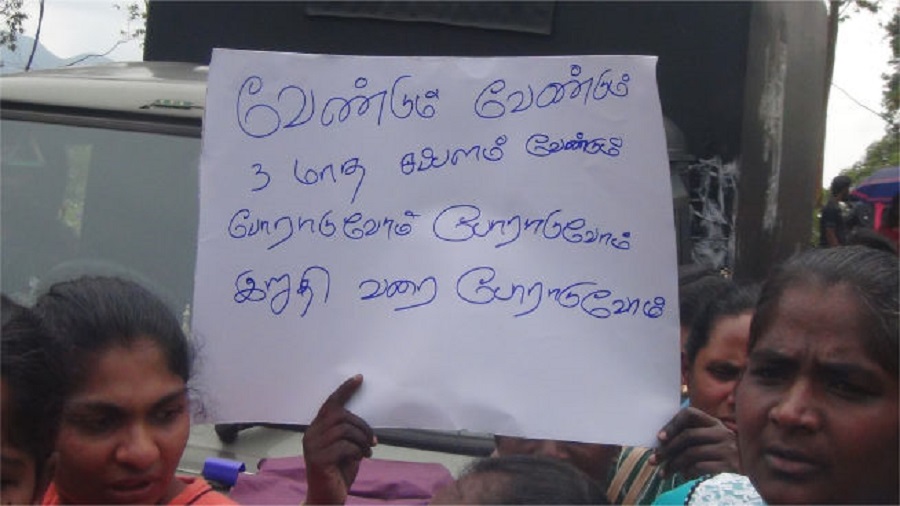 வேண்டும் வேண்டும்
3 மாத சம்பளம் வேண்டும்
போராடுவோம் போராடுவோம்
இறுதி வரை போராடுவோம்